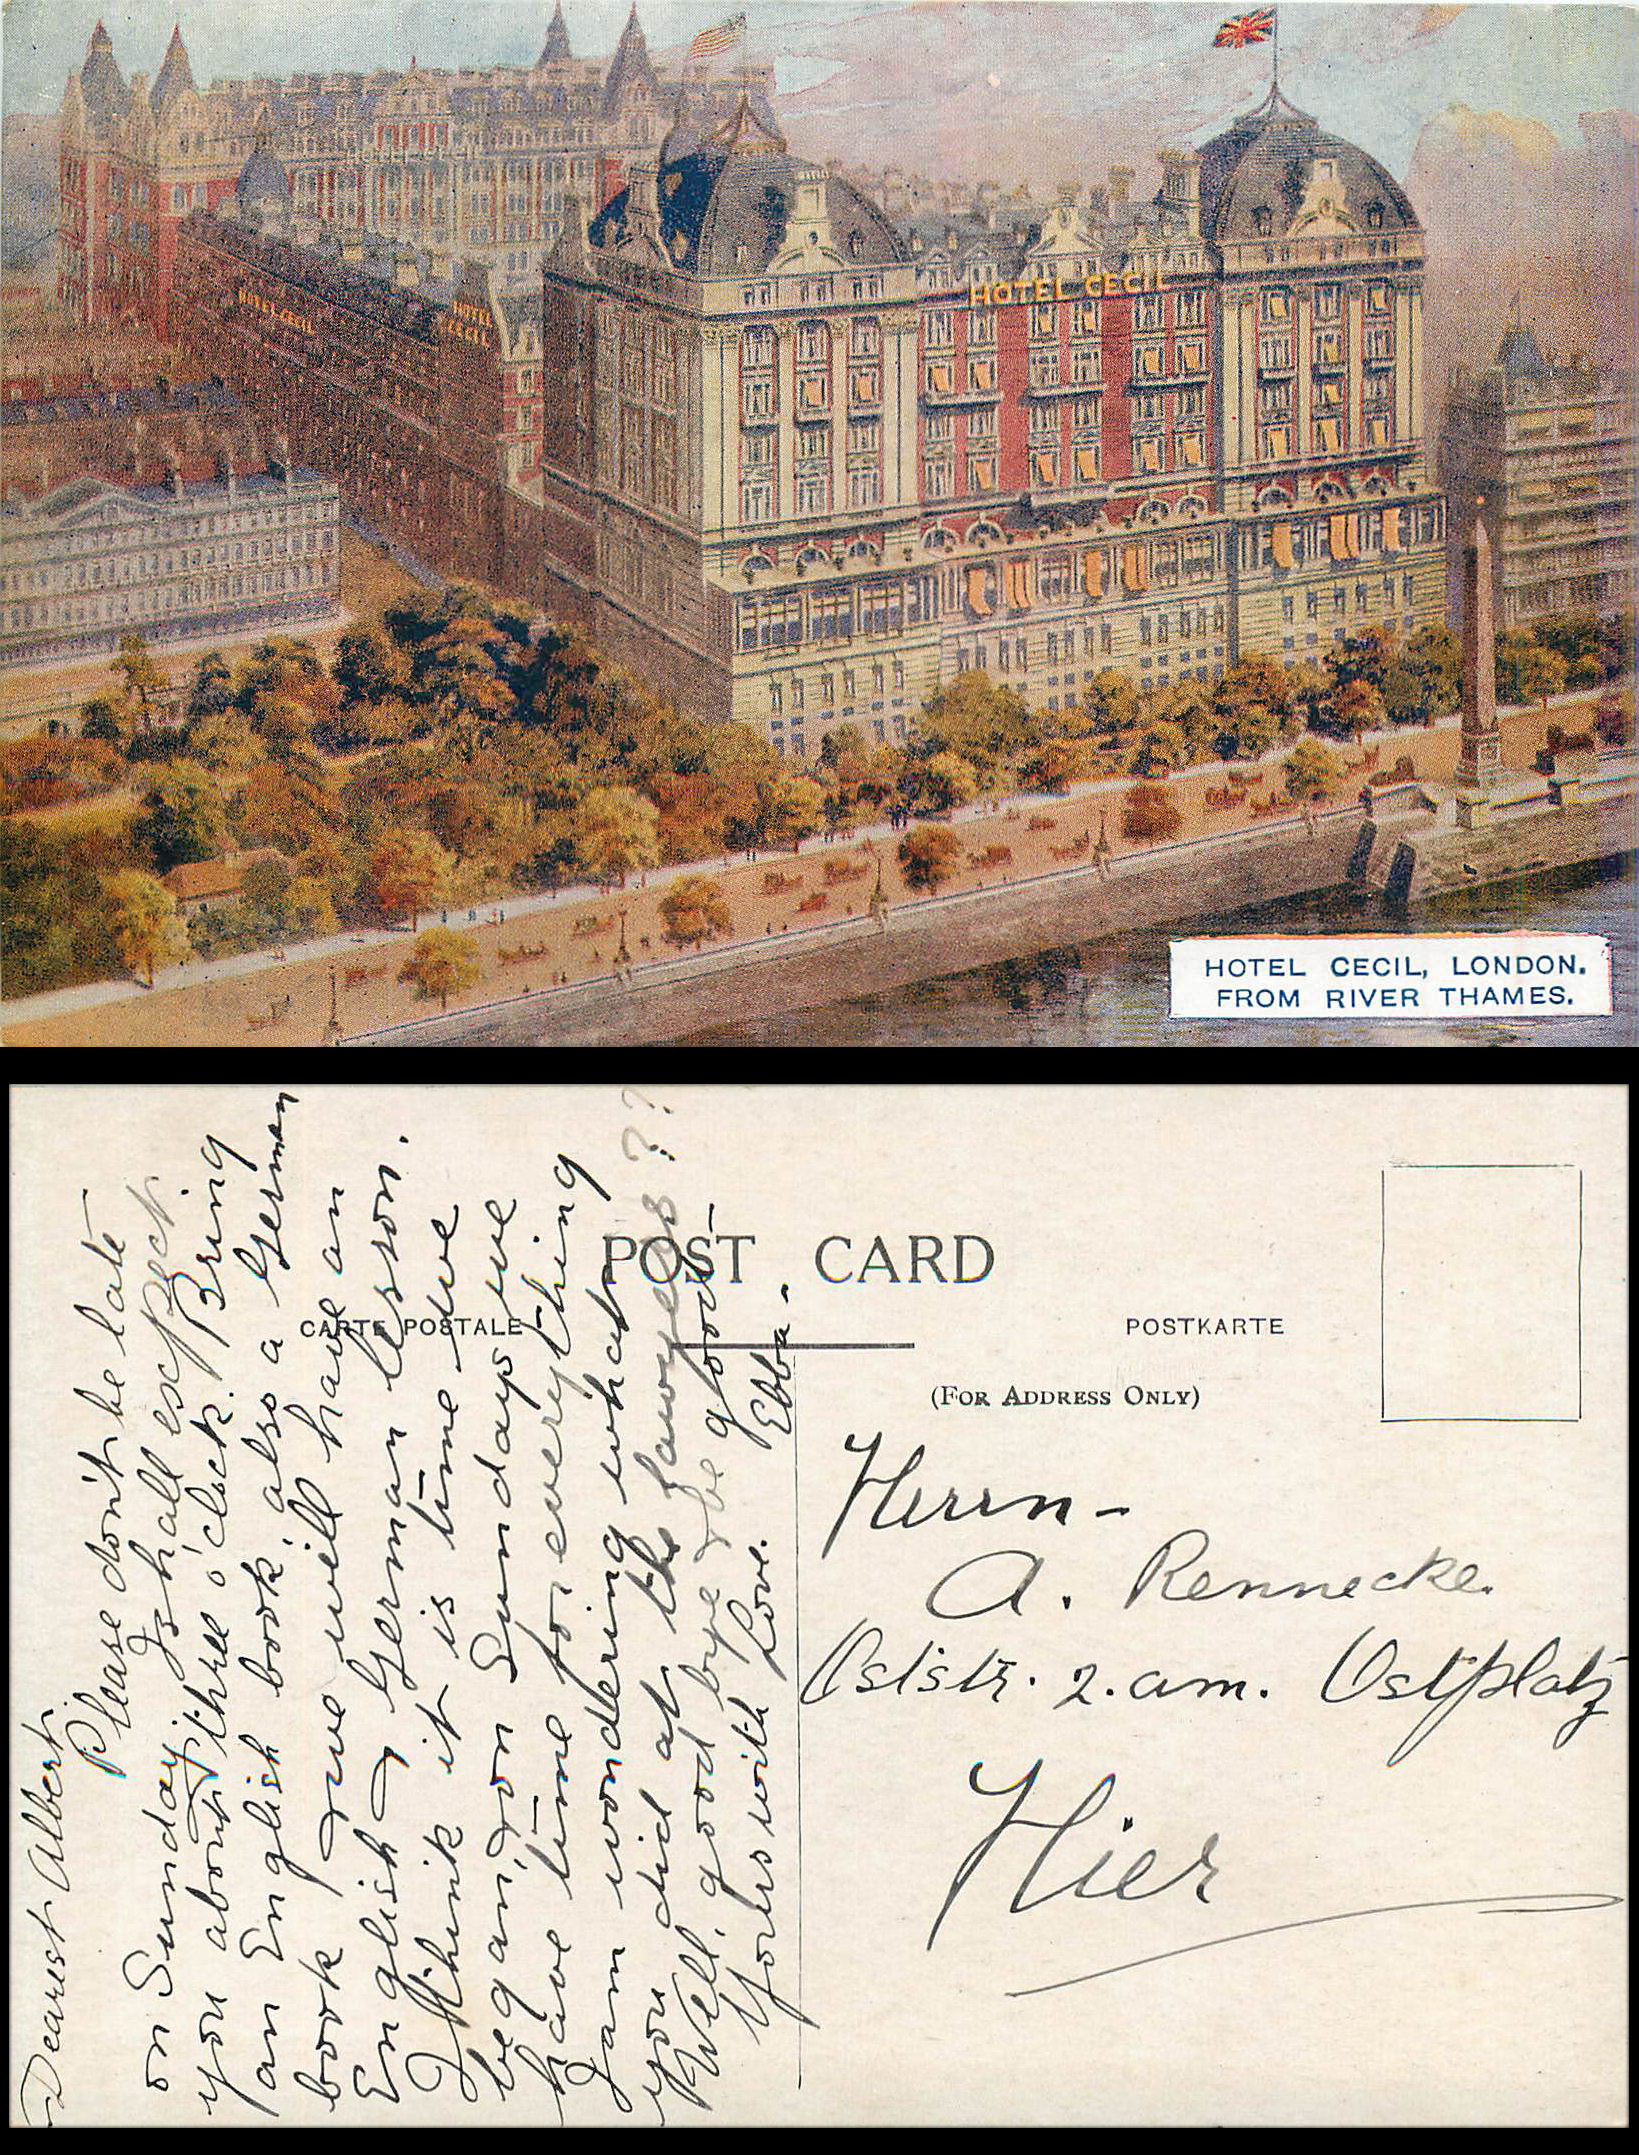 HOTEL CECIL
HOTEL
CECIL
HOTEL CECIL
HOTEL CECIL, LONDON.
FROM RIVER THAMES.
POST CARD
CARTE POSTALE
POSTKARTE
(FOR ADDRESS ONLY)
Dearest Albert.
Please don't be late
on Sunday, I shall expect
you about three o'clock. Bring
an English book, also a German
book & we will have an
English & German lesson.
I think it is time we
began, on Sundays we
have time for everything
I am wondering what
you did at the lawyers??
Well, good bye & be good
Yours with Love. Ebba.
Herrn
A. Rennecke.
Oststr. 2. am. Ostplatz
Hier